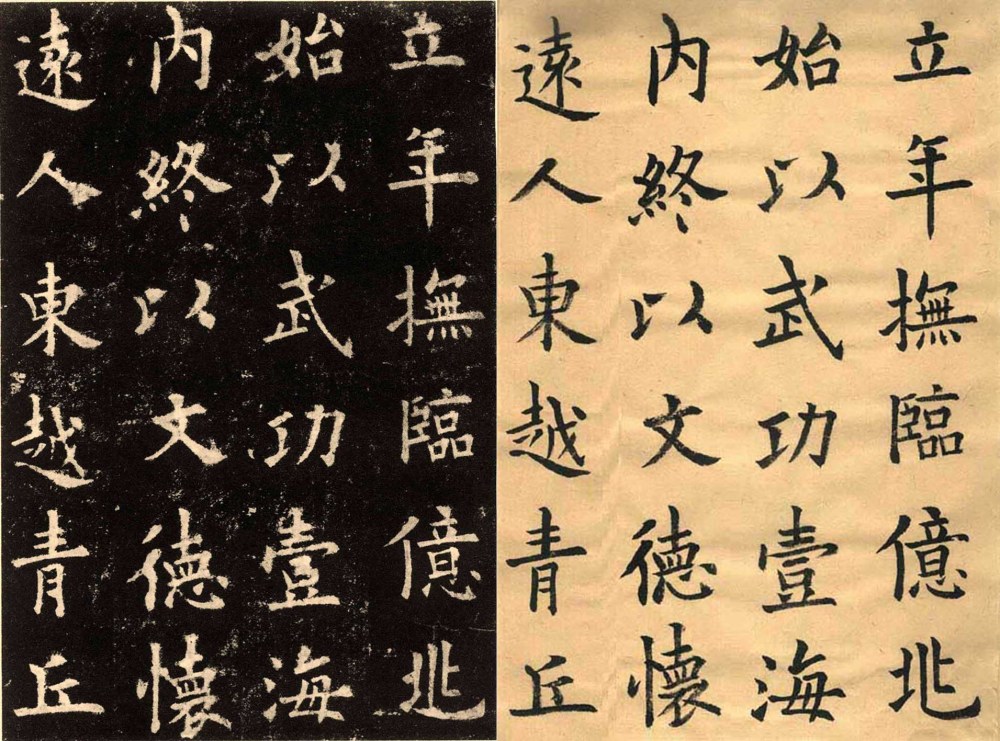 立年撫臨億兆
始以武功壹海
内終以文德懷
遠人東越青丘
立年撫臨億兆
始以武功壹海
内終以文德懷
遠人東越青丘